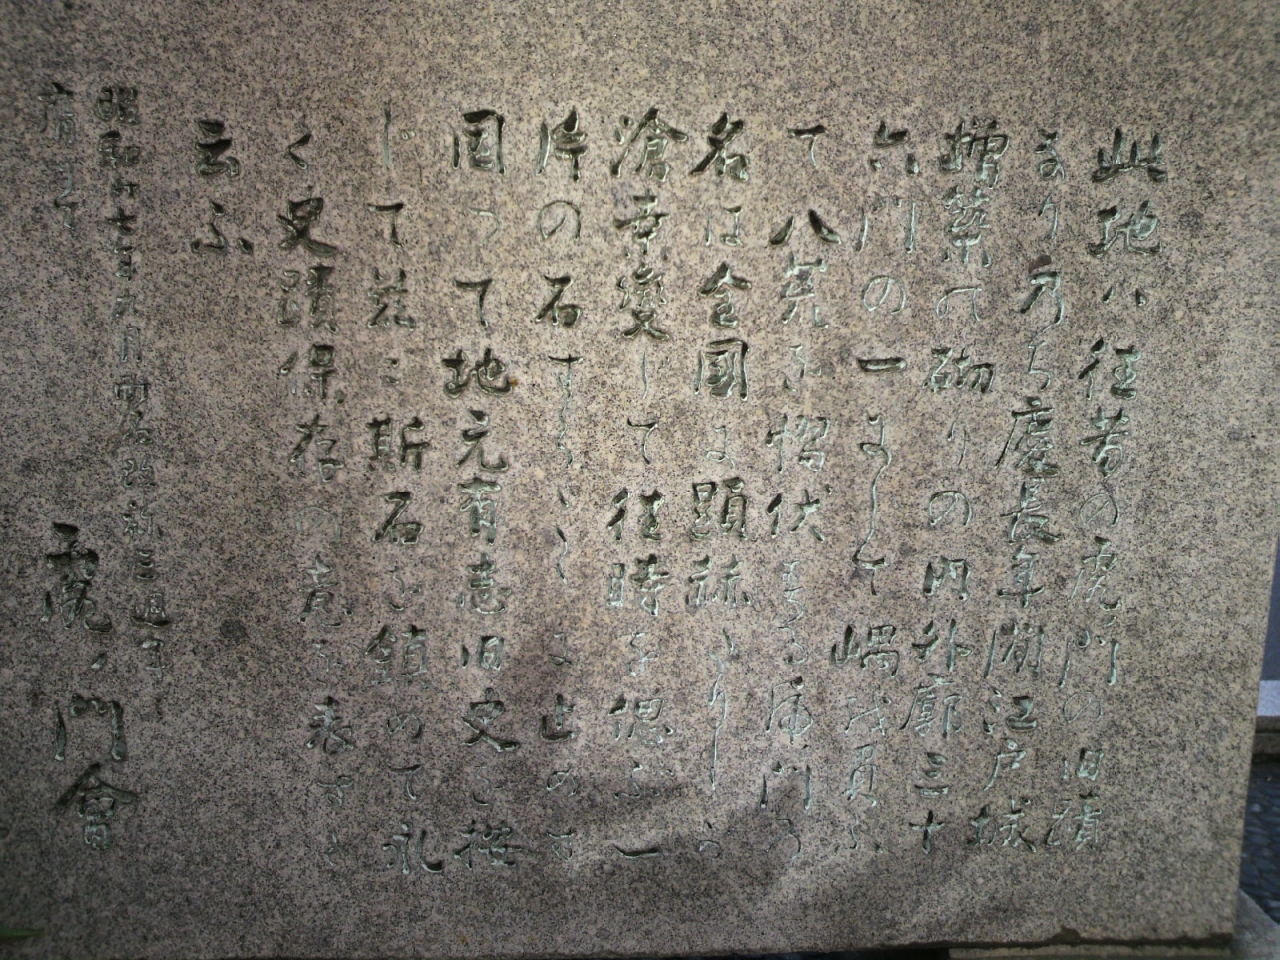 此地ハ往昔の虎ノ門の旧蹟
なり乃ち慶長年間江戸城
増築の砌りの内外廓三十
六門の一にして嵎を負ふ
て八荒を慴伏せる虎門の
名は全國に顕赫たりしが
滄桑変じて往時を偲ぶ一
片の石すらこゝに止めず
因つて地元有志旧史を探
じて茲に斯石を鎮めて礼
く史蹟保存の意を表すと
云ふ
昭和廿七年九月 町名改称三週年
虎ノ門會